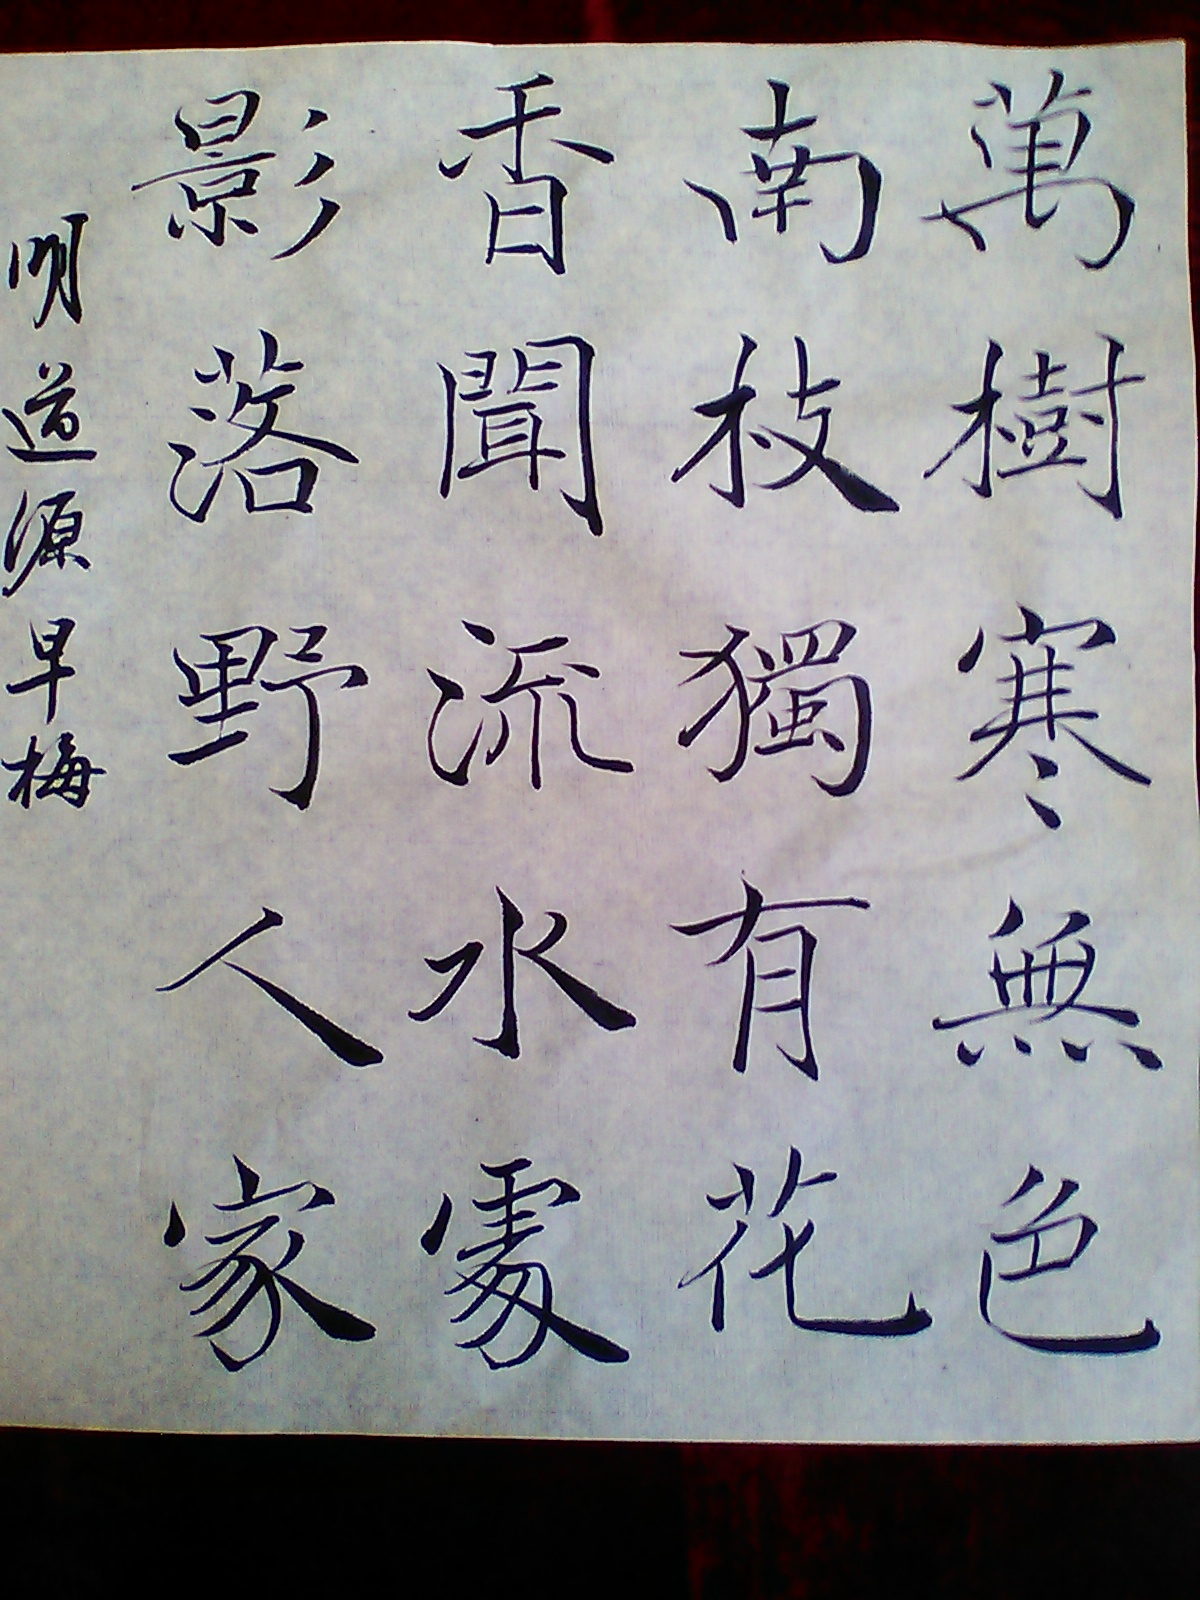 萬樹寒無色
南枝獨有花
香聞流水處
影落野人家
明道源早梅